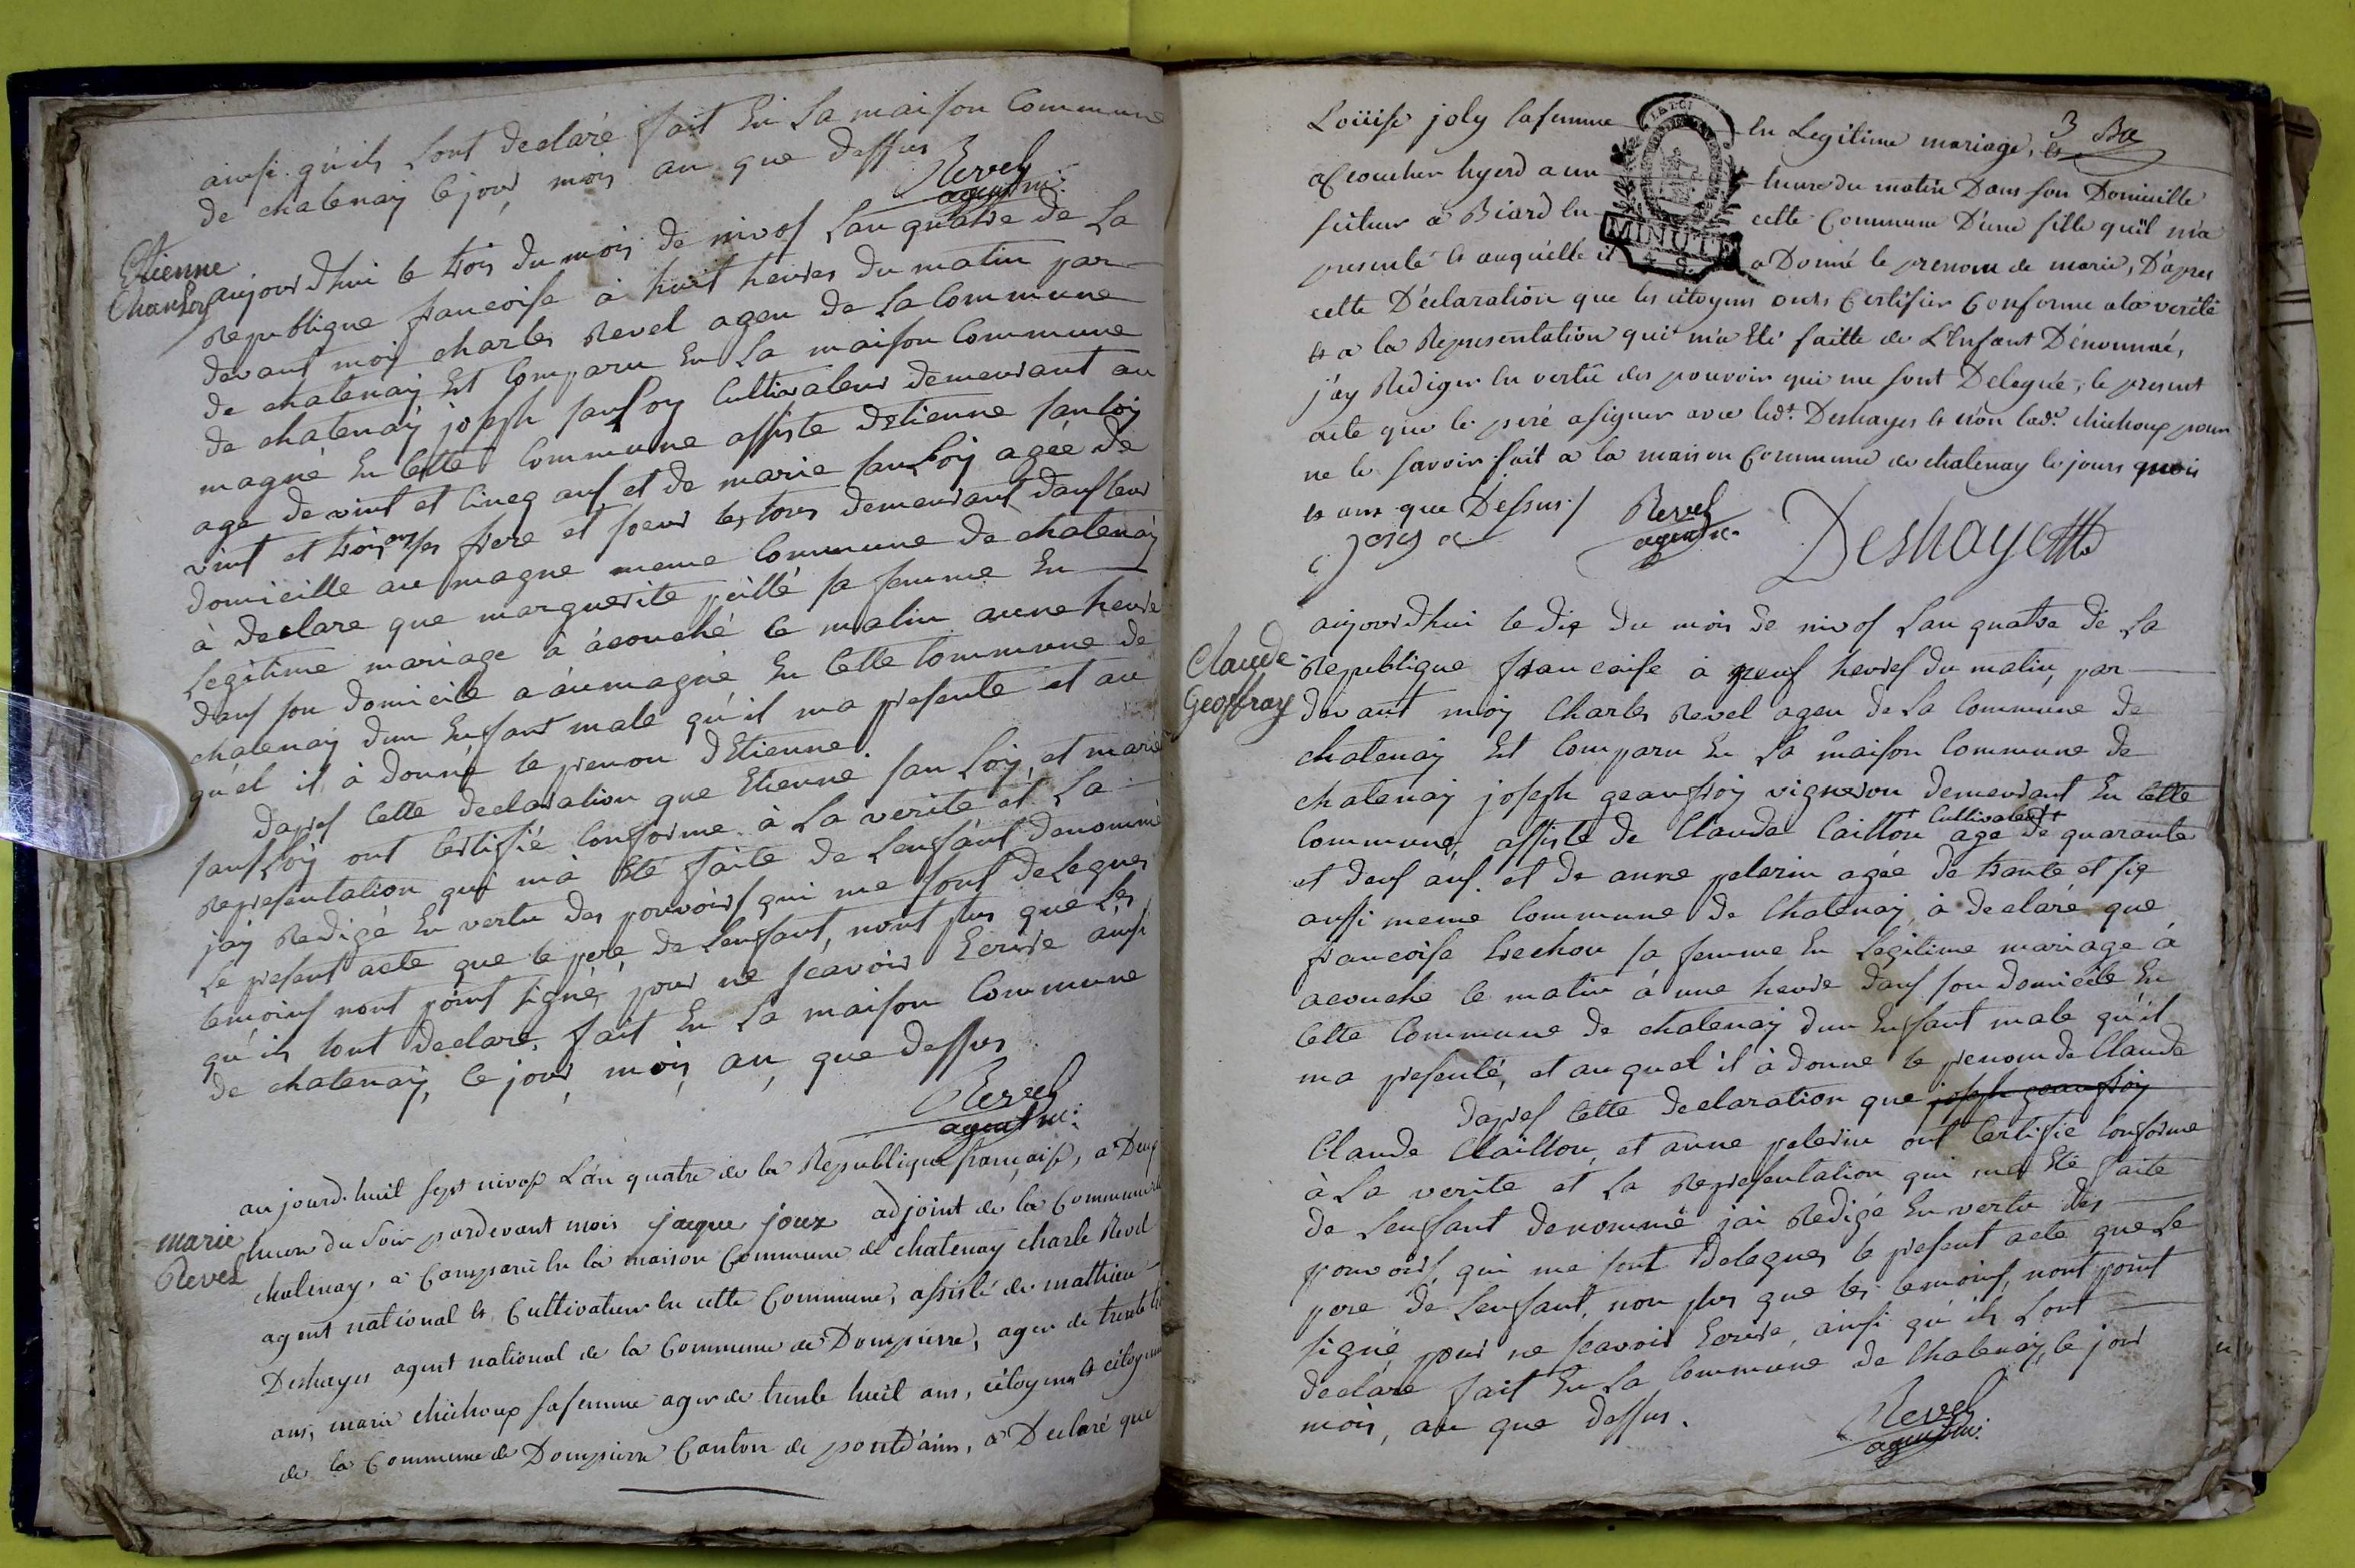 ainsi qu'ils Lont declaré fait En La maison Commune
de chatenaÿ le jour mois an que dessus
Revel
agent m.
Etienne
Chanloy
aujourdhui le trois du mois de nivos Lan quatre de La
Republique francoise à huit heures du matin par
devant moÿ charles Revel agen de La Commune
de chatenaÿ Est Comparu En La maison Commune
de chatenaÿ joseph sanloy Cultivateur demeurant au
magne En Cette Commune assiste dEtienne sanloy
age de vint et Cincq ans et de marie sanloÿ agée de
vint et trois ans ses frere et soeur les tous demeurant dans leur
domicille au magne meme Commune de chatenaÿ
à declare que marguerite peillé sa femme En
Legitime mariage à àcouché Ce matin aune heure
dans son domicile a àumagne En Cette Commune de
chatenaÿ dun Enfant male qu'il ma presente et au
qu'el il à donné le prenon dEtienne.
dapres Cette declaration que Etienne sanloÿ, et marie
sanloÿ ont Certifié Conforme à La verite et La
Representation qui mà Eté faite de Lenfant denommé
jaÿ Redigé En vertu des pouvoirs qui me sont delegues
Le present acte que le pere de Lenfant, nont plus que Les
temoins nont point signé, pour ne scavoir Ecrire ainsi
qu'ils Lont declaré, fait En La maison Commune
de chatenaÿ, le jour, mois, an, que dessus
Revel
agent m:
marie
Revel
aujourd.huit sept nivose L'an quatre de la Republique française, a Deux
heure du Soir pardevant mois jaque joux adjoint de la Commune de
chatenay, à Comparu En la maison Commune de chatenay charle Revel
agent national Et Cultivateur En cette Commune, assisté de mathieu
Deshayes agent national de la Commune de Dompierre, ager de trente
ans, marie chichoux safemme ager de trente huit ans, citoyens Et citoyenne
de la Commune de Dompierre Canton de pontd'ains, a Declaré que
3 Ba
Loüise joly safemme En Legitime mariage, Et
acoucher hyerd a un heure du matin Dans son Domicille
sciteur a Biard En cette Commune D'une fille quïl m'a
presenté Et auquelle il a Donné le prenom de marie, D'apres
LA LOI
MINUTE
4. S.
cette Déclaration que les citoyens onts Certifier Conforme ala verité
Et a la Representation qui m'a Eté faitte de L'Enfant Dénommé,
j'ay Rediger En vertû des pouvoir qui me sont Delegué, le present
acte que le peré asigner avec led.t Deshayes Et non lad.e chichoux pour
ne le savoir fait a la maison Commune de chatenay le jours mois
Et ans que Dessus /
Revel
agent m.
Deshayes
Claude
Geoffray
aujourdhui le dix du mois de nivos Lan quatre de La
Republique francaise à neuf heures du matin, par
devant moÿ Charles Revel agen de La Commune de
chatenaÿ Est Comparu En La maison Commune de
chatenaÿ joseph geaufroÿ vigneron demeurant En Cette
Commune, assiste de Claude Caillon + Cultivateur + age de quarante
et deux ans. et de anne pelerin agée de trante et six
aussi meme Commune de Chatenaÿ, à declaré que
francoise trechou sa femme En Legitime mariage à
acouche Ce matin à une heure dans son domicile En
Cette Commune de chatenaÿ dun Enfant male qu'il
ma presenté, et auquel il à donne le prenom de Claude
dapres Cette declaration que joseph geaufroÿ
Claude Claillon, et anne pelerin ont Certifie Conforme
à La verite et La Representation qui ma Eté faite
de Lenfant denommé jai Redigé En vertu des
pouvoirs qui me sont delegues le present acte que Le
pere de Lenfant, non plus que les temoins, nont point
signé, pour ne scavoir Ecrire, ainsi qu'ils Lont
declaré fait En La Commune de Chatenaÿ, le jour
mois, an que dessus.
Revel
agent m: